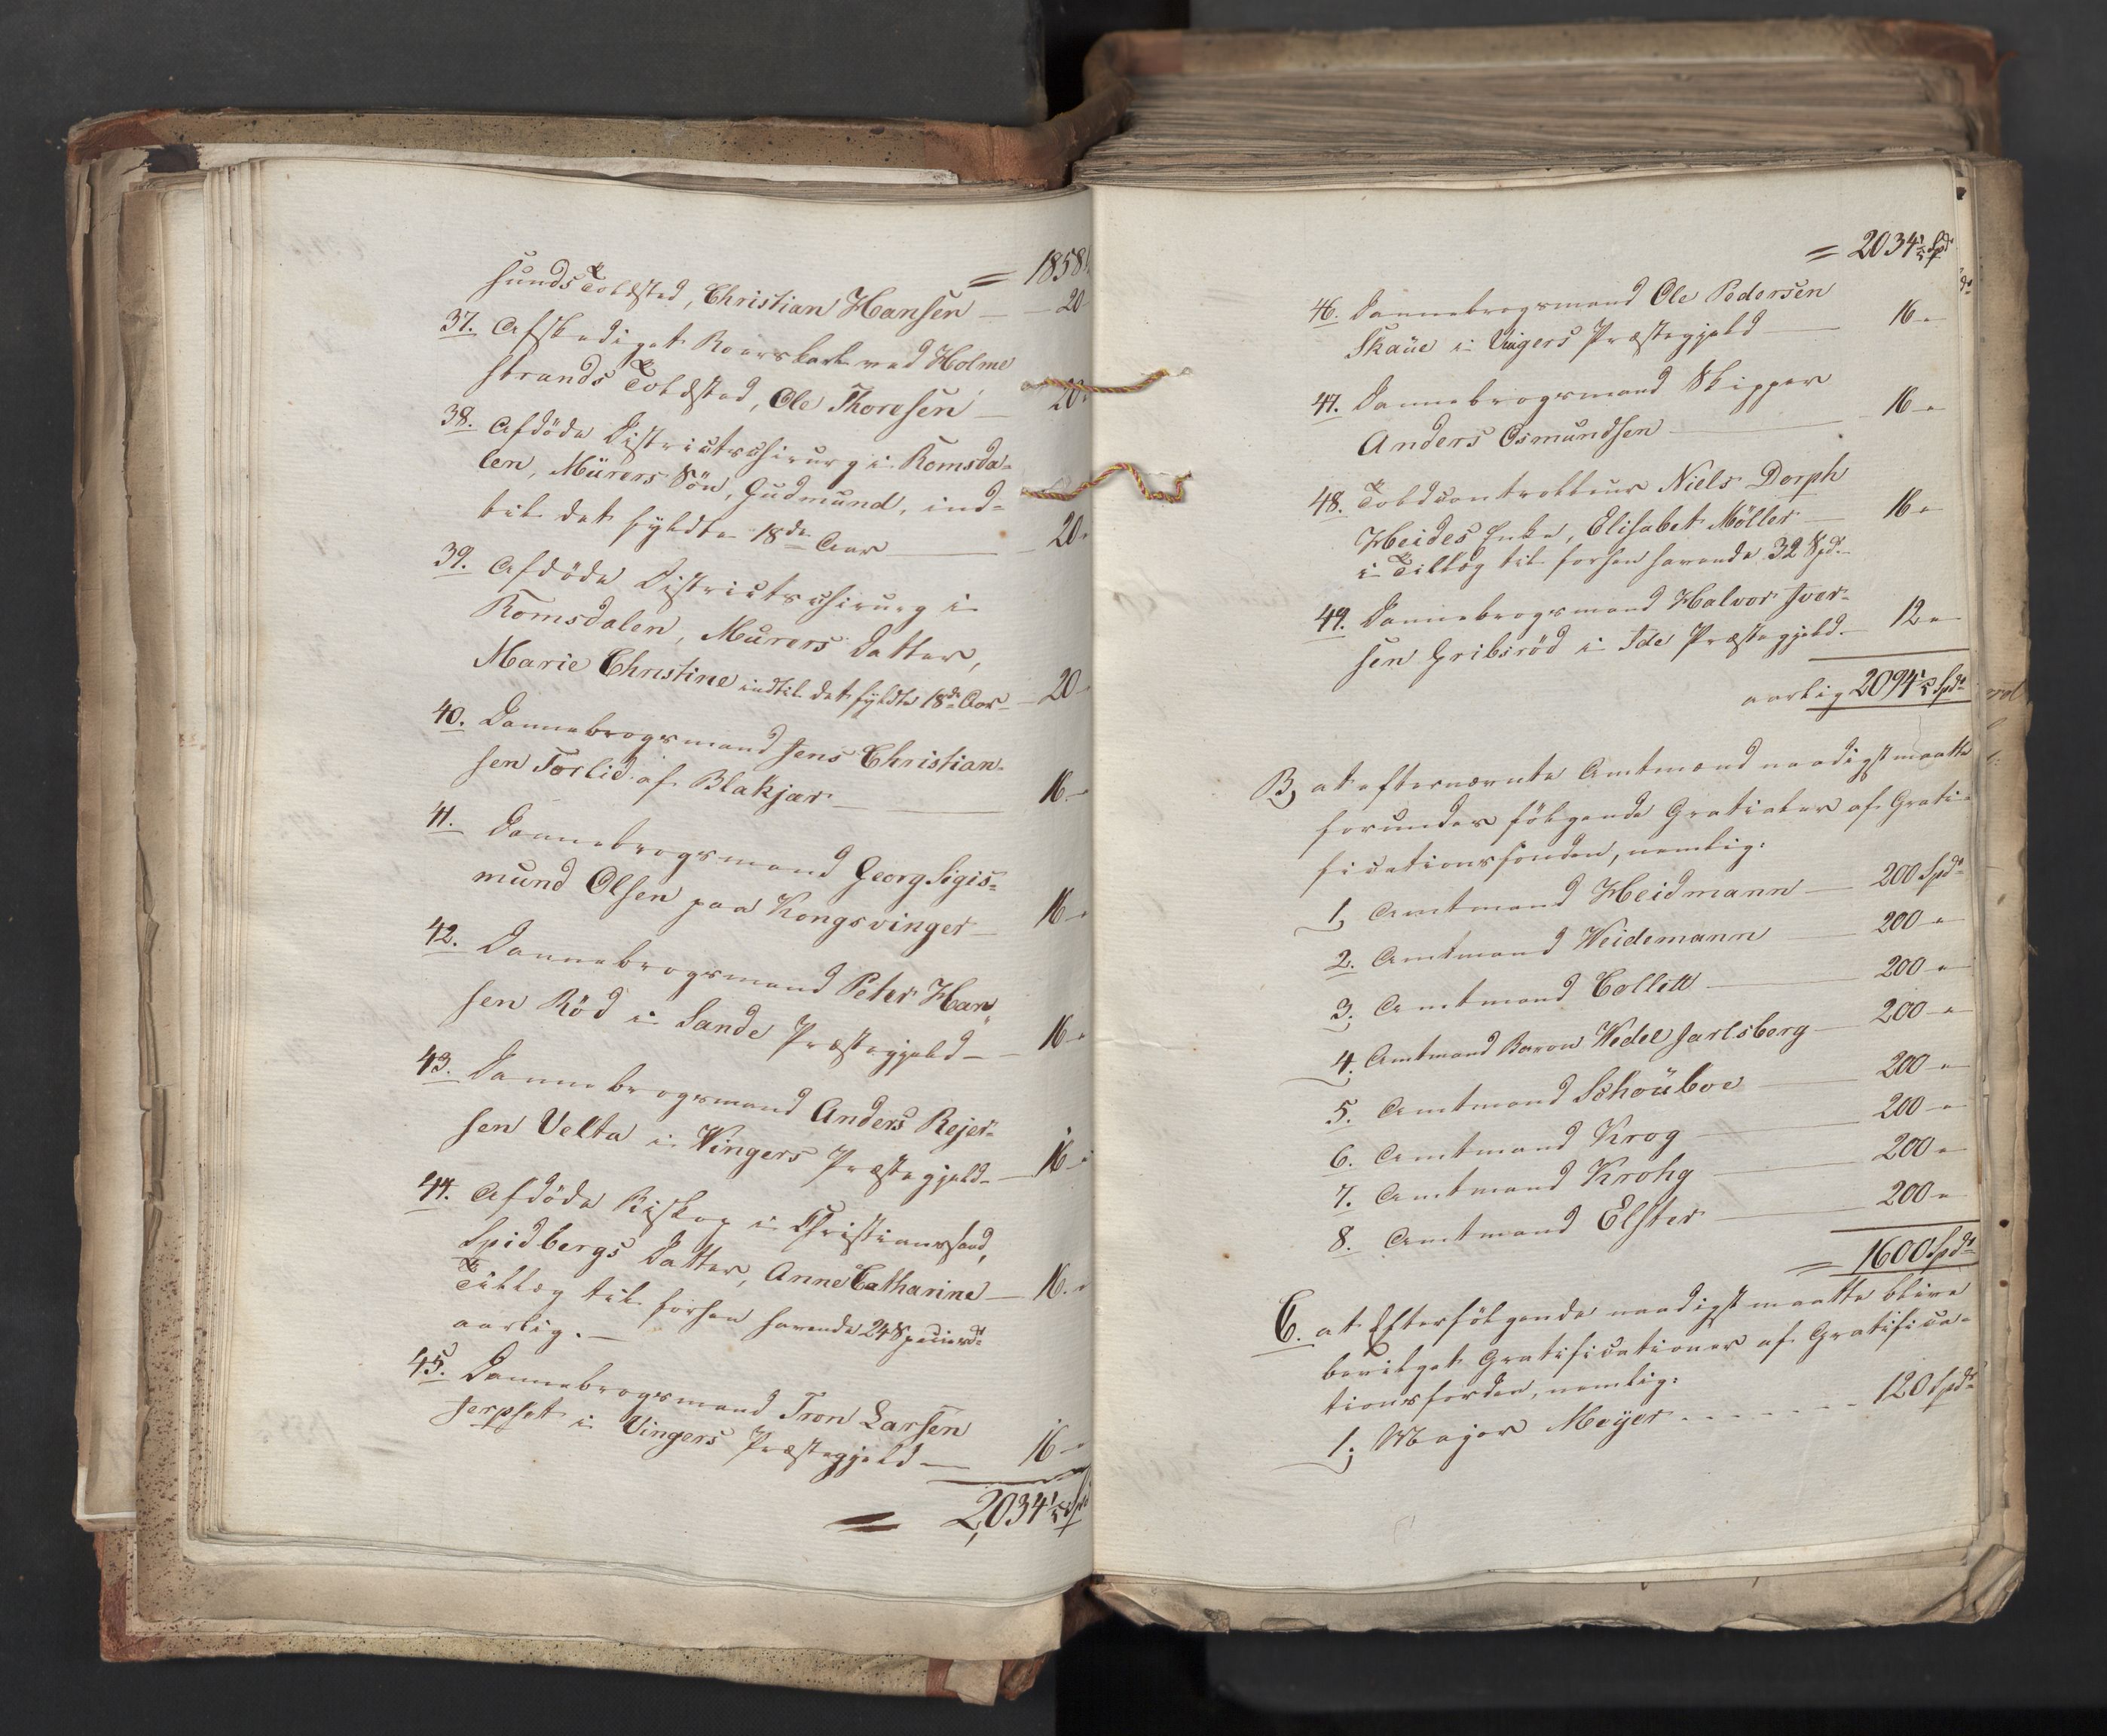 = 1858
sunds Toldsted, Christian Hansen — 20
37. Afskediget Roerskarl ved Holme
strands Toldsted, Ole Thoresen — 20
38. Afdöde Districtschirurg i Romsda-
len, Mürers Sön, Gudmund, ind-
til det fyldte 18de Aar — 20
39. Afdöde Districtschirurg i
Romsdalen, Mürers Datter,
Marie Christine indtil det fyldte 18de Aar — 20
40. Dannebrogsmand Jens Christian-
sen Torlid af Blakjær — 16 -
41. Dannebrogsmand Georg Sigis-
mund Olsen paa Kongsvinger — 16 -
42. Dannebrogsmand Peter Han-
sen Röd i Sande Præstegjeld — 16 -
43. Dannebrogsmand Anders Rejer-
sen Velta i Vingers Præstegjeld — 16 -
44. Afdöde Biskop i Christianssand,
Spidbergs Datter, Anne Catharine — 16 -
Tillæg til forhen havende 24 Speciesdr
aarlig. —
45. Dannebrogsmand Tron Larsen
Jerpset i Vingers Præstegjeld — 16 -
= 2034 1/5 Spd
= 2034 1/5 Spd
46. Dannebrogsmand Ole Pedersen
Skaüe i Vingers Præstegjeld — 16 -
47. Dannebrogsmand Skipper
Anders Osmundsen — 16 -
48. Toldcontrolleur Niels Dorph
Heides Enke, Elisabet Möller — 16 -
i Tillæg til forhen havende 32 Spd. —
49. Dannebrogsmand Halvor Iver-
sen Gribsröd i Ide Præstegjeld. — 12 -
aarlig 2094 1/5 Spdr
B, at efternævnte Amtmænd naadigst maatte
forundes fölgende Gratialer af Grati-
ficationsfonden, nemlig:
1, Amtmand Heidmann — 200 Spdr
2. Amtmand Weidemann — 200 -
3. Amtmand Collett — 200 -
4. Amtmand Baron Wedel Jarlsberg — 200 -
5. Amtmand Schoüboe — 200 -
6. Amtmand Krog — 200 -
7. Amtmand Krohg — 200 -
8. Amtmand Elster — 200 -
= 1600 Spdr
C. at Efterfölgende naadigst maatte blive
bevilget Gratificationer af Gratifica-
tionsfonden, nemlig:
1, Major Meyer - - - - - - - 120 Spdr